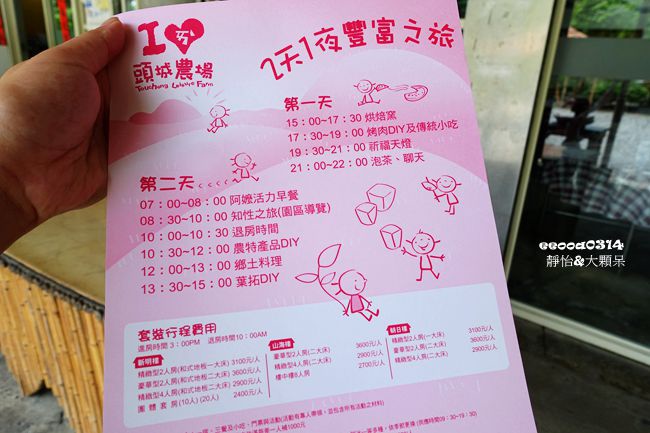 I ㄞ
頭城農場
Toucheng Leisure Farm
2天1夜豐富之旅
第一天
15:00~17:30 烘焙窯
17:30~19:00 烤肉DIY及傳統小吃
19:30~21:00 祈福天燈
21:00~22:00 泡茶、聊天
第二天....
07:00~08:00 阿嬤活力早餐
08:30~10:00 知性之旅(園區導覽)
10:00~10:30 退房時間
10:30~12:00 農特產品DIY
12:00~13:00 鄉土料理
13:30~15:00 葉拓DIY
eeooa0314
靜怡&大顆呆
套裝行程費用
進房時間3:00PM 退房時間10:00AM
新明樓
精緻型2人房(和式地板一大床) 3100元/人
豪華型2人房(和式地板二大床) 3600元/人
精緻型4人房(和式地板二大床) 2900元/人
團體套房(10人)(20人) 2400元/人
山海樓
豪華型2人房(二大床) 3600元/人
精緻型4人房(二大床) 2900元/人
樓中樓8人房 2700元/人
朝日樓
精緻型2人房(一大床) 3100元/人
豪華型2人房(二大床) 3600元/人
精緻型4人房(二大床) 2900元/人
三餐及小吃、門票與活動(活動有專人帶領，並包含所有活動之材料)
一人補1000元